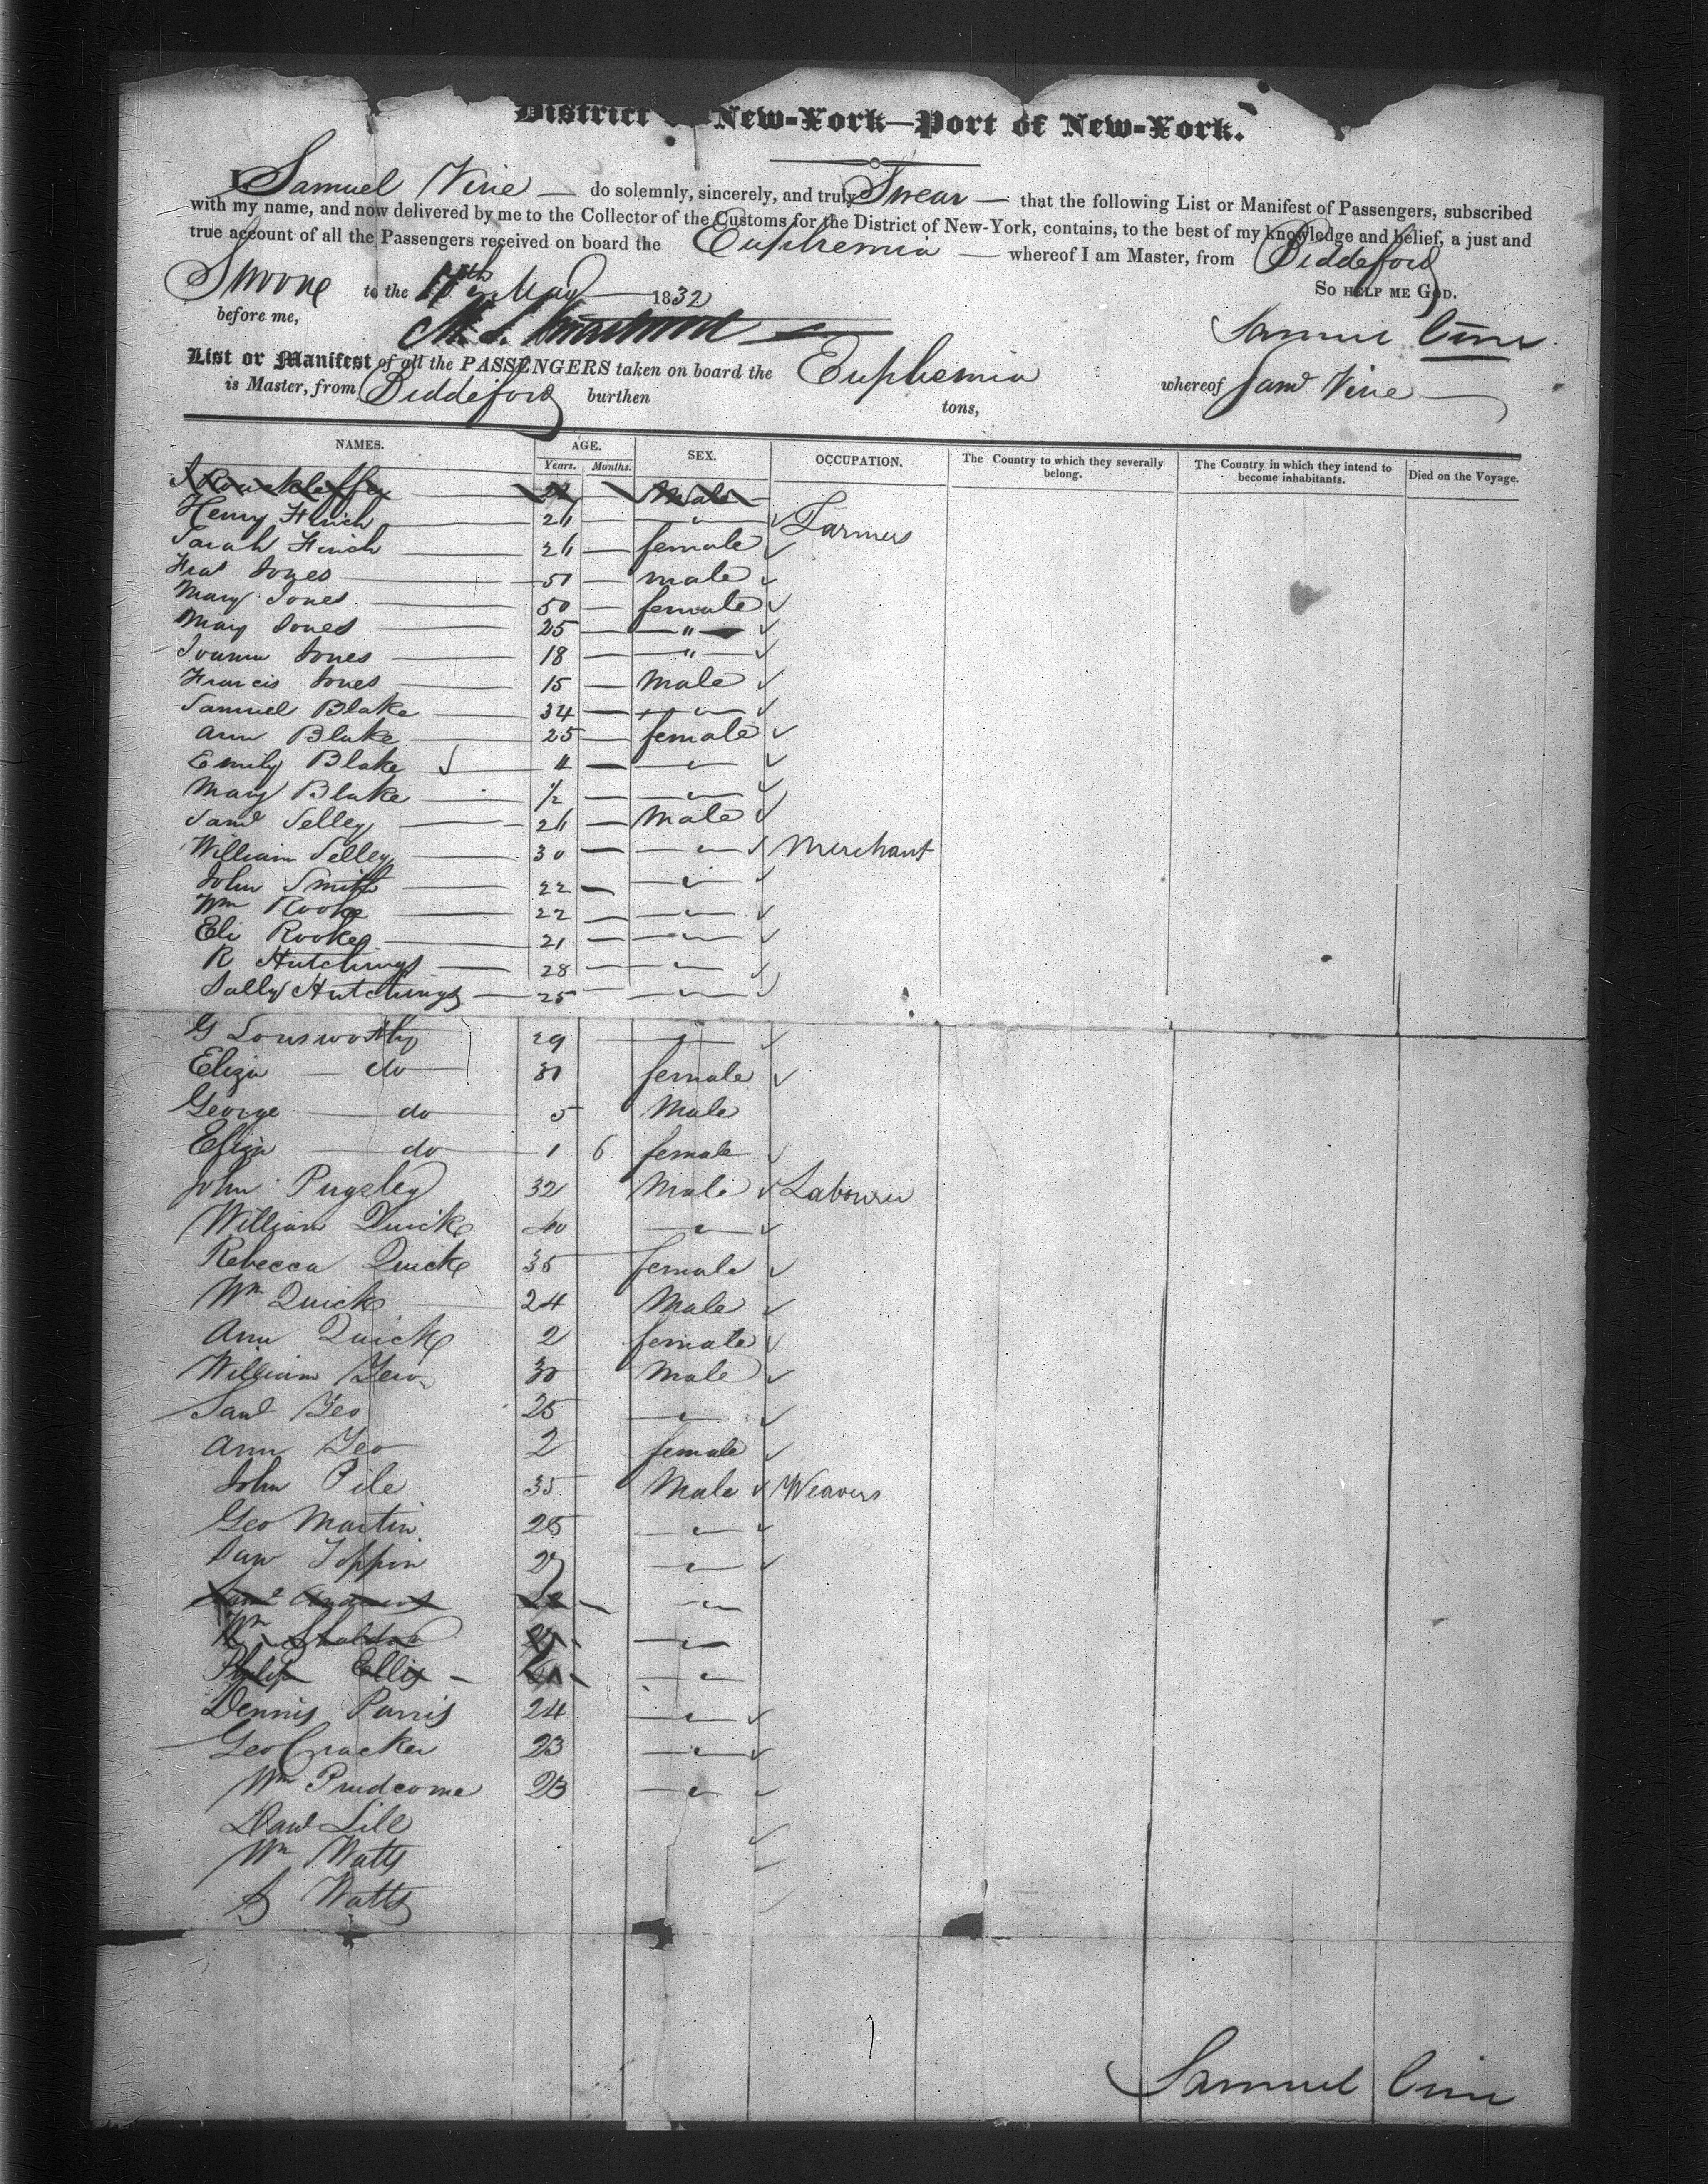 District New-York—Port of New-York.
I Samuel Vine — do solemnly, sincerely, and truly Swear — that the following List or Manifest of Passengers, subscribed
with my name, and now delivered by me to the Collector of the Customs for the District of New-York, contains, to the best of my knowledge and belief, a just and
true account of all the Passengers received on board the Euphemia — whereof I am Master, from Biddeford
Swore to the May 1832 So help me God.
before me, Samuel Vine
List or Manifest of all the PASSENGERS taken on board the Euphemia whereof Saml Vine
is Master, from Biddeford burthen tons,
NAMES. AGE. SEX. OCCUPATION. The Country to which they severally belong. The Country in which they intend to become inhabitants. Died on the Voyage.
Years. Months.
Male
Henry Finch " Farmers
Sarah Finch female
Jones 51 male
Mary Jones 50 female
Mary Jones 25 "
Joanna Jones 18 "
Francis Jones 15 Male
Samuel Blake 34 "
Ann Blake 25 female
Emily Blake "
Mary Blake 1/2 "
Saml Selley Male
William Selley 30 " Merchant
John Smith 22 "
Wm Rooke 22 "
Eli Rooke 21 "
R Hutchings 28 "
Sally Hutchings 25 "
G Lonsworthy 29 "
Eliza do female
George do 5 Male
Eliza do 1 6 female
John Pugsley 32 Male Labourer
William Quick 40 "
Rebecca Quick 35 female
Wm Quick 24 Male
Ann Quick 2 female
William Yeo 30 Male
Saml Yeo 25 "
Ann Yeo 2 female
John Pile 35 Male Weavers
Geo Martin 25 "
Toppin 27 "
Saml Andrews "
Wm "
Philip Ellis "
Dennis Parris 24 "
Geo Cracker 23 "
Wm Prudcome 23 "
Lill
Wm Watts
Watts
Samuel Vine